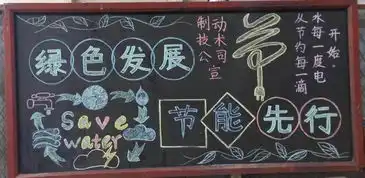 绿色发展
制动
技术
公司
宣
节
从节约每一滴
水每一度电
开始.
Save
water
节能先行